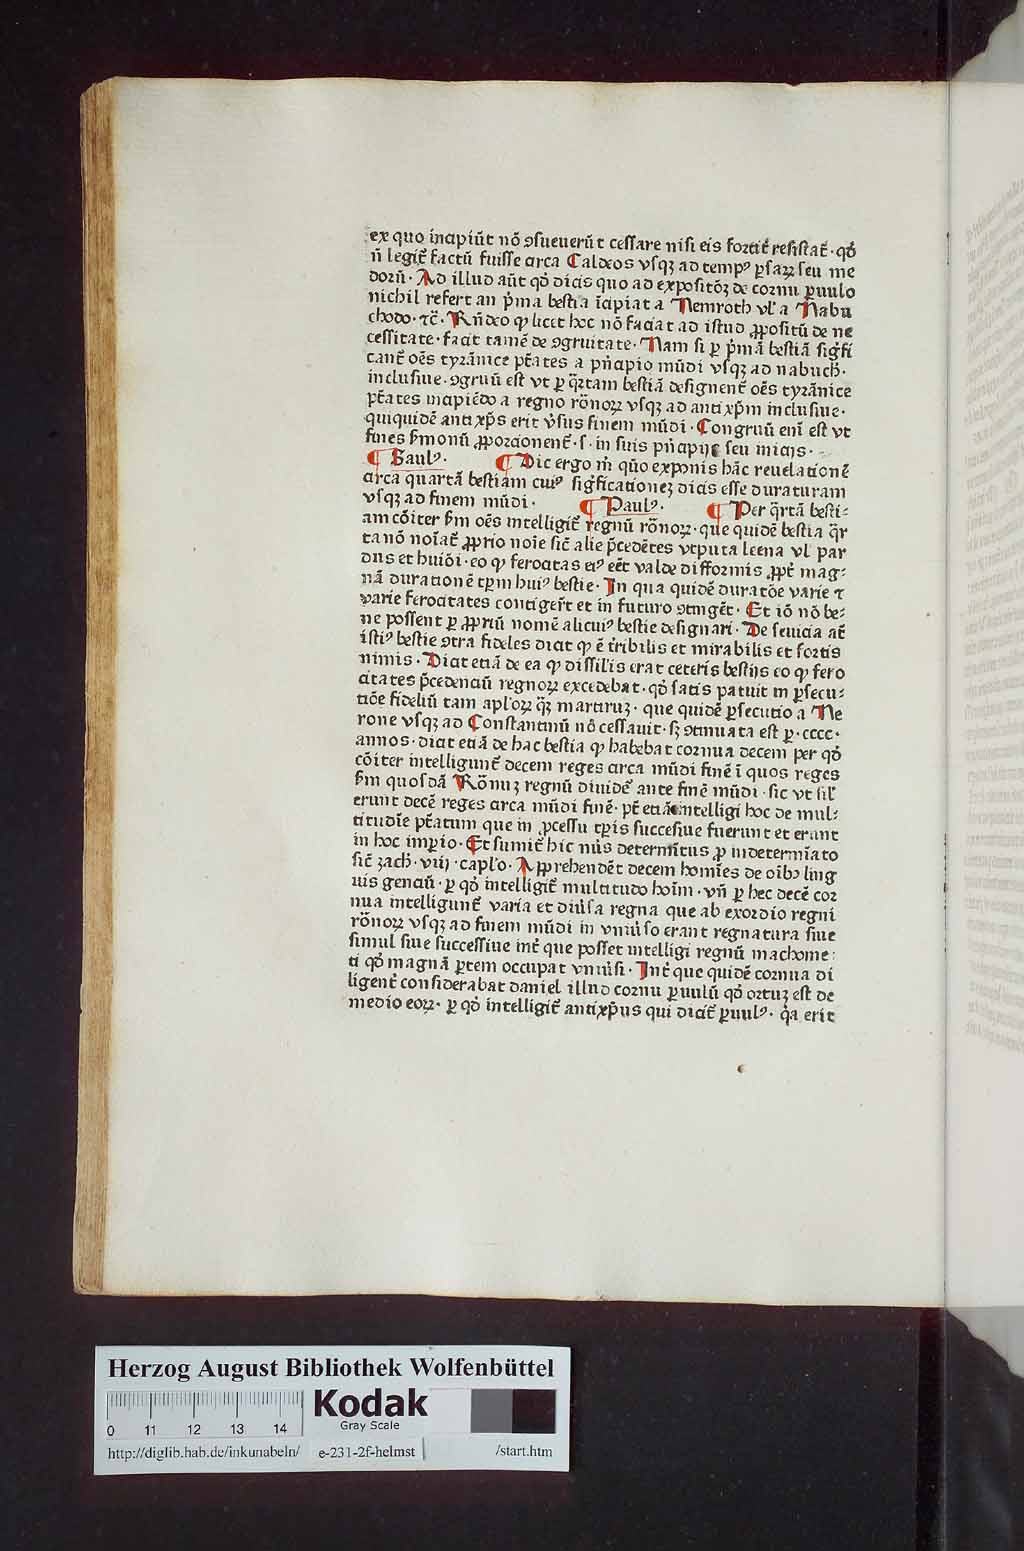 ex quo incipiūt nō ꝯsueuerūt cessare nisi eis fortit̄ resistat̄ · qď
n̄ legit̄ factū fuisse circa Caldeos vsqꝫ ad tempꝰ ꝑsaꝝ seu me
doꝝ · Ad illud aūt qď dicis quo ad expositōꝫ de cornu ꝑuulo
nichil refert an p̄ma bestia īcipiat a Nemroth vl̓ a Nabu
chodo · ⁊c̄ · Rn̄deo ꝙ licet hoc nō faciat ad istud ꝓpositū de ne
cessitate · facit tamē de ꝯgruitate · Nam si ꝑ p̄mā bestiā sigfi
cant̄ oēs tyrānice ptātes a pn̄cipio mūdi vsqꝫ ad nabuch̄ ·
inclusiue · ꝯgruū est vt ꝑ q̄rtam bestiā designent̄ oēs tyrānice
ptātes incipiēdo a regno rōnoꝝ vsqꝫ ad antixp̄m inclusiue ·
quiquidē antixp̄s erit v̓sus finem mūdi · Congruū eni̅ est vt
fines s̄monū ꝓporcionent̄ · s · in suis pn̄cipijs seu inicijs ·
¶ Saulꝰ · ¶ Dic ergo m̓ quō exponis hāc reuelationē
circa quartā bestiam cuiꝰ sigficationeꝫ dicis esse duraturam
vsqꝫ ad finem mūdi · ¶ Paulꝰ · ¶ Per q̄rtā besti-
am cōiter s̄m oēs intelligit̄ regnū rōnoꝝ · que quidē bestia q̄r
ta nō noīat̄ ꝓprio noīe sic̄ alie p̄cedētes vtputa leena vl̓ par
dus et huiōi · eo ꝙ ferocitas eiꝰ eēt valde difformis ꝓpt̄ mag-
nā durationē tp̄m huiꝰ bestie · In qua quidē duratōe varie ⁊
varie ferocitates contiger̄t et in futuro ꝯtinget̄ · Et iō nō be-
ne possent ꝑ ꝓpriū nomē alicuiꝰ bestie designari · De seuicia at̄
istiꝰ bestie ꝯtra fideles dicit ꝙ ē t̓ribilis et mirabilis et fortis
nimis · Dicit etiā de ea ꝙ dissilis erat ceteris bestijs eo ꝙ fero
citates p̄cedenciū regnoꝝ excedebat · qď satis patuit in ꝑsecu-
tiōe fideliū tam apl̓oꝝ qꝫ martiruꝫ · que quidē ꝑsecutio a Ne
rone vsqꝫ ad Constantinū nō cessauit · sꝫ ꝯtinuata est ꝑ · cccc ·
annos · dicit etiā de hac bestia ꝙ habebat cornua decem per qď
cōiter intelligunt̄ decem reges circa mūdi finē ī quos reges
s̄m quosdā Rōnuꝫ regnū diuidet̄ ante finē mūdi · sic vt sil̓
erunt decē reges circa mūdi finē · pt̄ etiā intelligi hoc de mul-
titudīe ptātum que in ꝓcessu tp̄is succesiue fuerunt et erunt
in hoc imꝑio · Et sumit̄ hic nūs determītus ꝓ indetermīato
sic̄ zach̄ · viij · capl̓o · Apprehendēt decem homīes de oībꝫ ling
uis genciū · ꝑ qď intelligit̄ multitudo hoīm · vn̄ ꝑ hec decē cor
nua intelligunt̄ varia et diu̓sa regna que ab exordio regni
rōnoꝝ vsqꝫ ad finem mūdi in vniu̓so erant regnatura siue
simul siue successiue int̄ que posset intelligi regnū machome-
ti qď magnā ꝑtem occupat vniu̓si · Int̄ que quidē cornua di
ligent̄ considerabat daniel illud cornu ꝑuulū qď ortuꝫ est de
medio eoꝝ · ꝑ qď intelligit̄ antixp̄us qui dicit̄ ꝑuulꝰ · q̄a erit
Herzog August Bibliothek Wolfenbüttel
0 11 12 13 14
Kodak
Gray Scale
http://diglib.hab.de/inkunabeln/ e-231-2f-helmst /start.htm